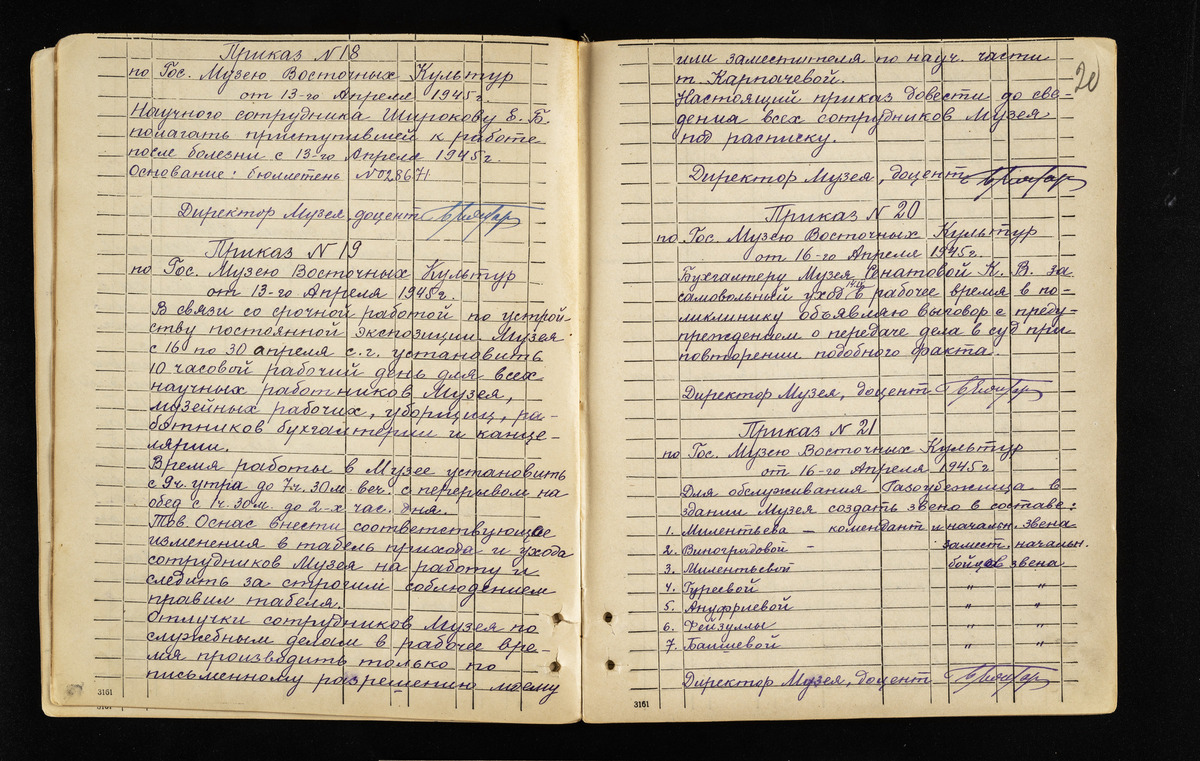 Приказ N 18
по Гос. Музею Восточных Культур
от 13-го Апреля 1945г.
Научного сотрудника Широкову Е. Б.
полагать приступившей к работе
после болезни с 13-го Апреля 1945г.
Основание: бюллетень N 028671
Директор Музея доцент
Приказ N 19
по Гос. Музею Восточных Культур
от 13-го Апреля 1945г.
В связи со срочной работой по устрой-
ству постоянной экспозиции Музея
с 16 по 30 апреля с.г. установить
10 часовой рабочий день для всех
научных работников Музея,
музейных рабочих, уборщиц, ра-
ботников бухгалтерии и канце-
лярии.
Время работы в Музее установить
с 9 ч. утра до 7 ч. 30 м. веч. с перерывом на
обед с 1 ч. 30 м. до 2-х час. дня.
Тов Оснас внести соответствующие
изменения в табель прихода и ухода
сотрудников Музея на работу и
следить за строгим соблюдением
правил табеля.
Отлучки сотрудников Музея по
служебным делам в рабочее вре-
мя производить только по
письменному разрешению моему
3161
или заместителя по науч. части
т. Карпачевой.
20
Настоящий приказ довести до све-
дения всех сотрудников Музея
под расписку.
Директор Музея, доцент
Приказ N 20
по Гос. Музею Восточных Культур
от 16-го Апреля 1945г.
Бухгалтеру Музея Сенатовой К. В. за
самовольный уход в рабочее время в по-
ликлинику объявляю выговор с преду-
преждением о передаче дела в суд при
повторении подобного факта.
Директор Музея, доцент
Приказ N 21
по Гос. Музею Восточных Культур
от 16-го Апреля 1945г
Для обслуживания Газоубежища в
здании Музея создать звено в составе:
1. Милентьева — комендант и начальн. звена
2. Виноградовой – замест. начальн.
3. Милентьевой бойцов звена
4. Гуреевой " "
5. Ануфриевой " "
6. Фейзуллы " "
7. Баишевой " "
Директор Музея, доцент
3161